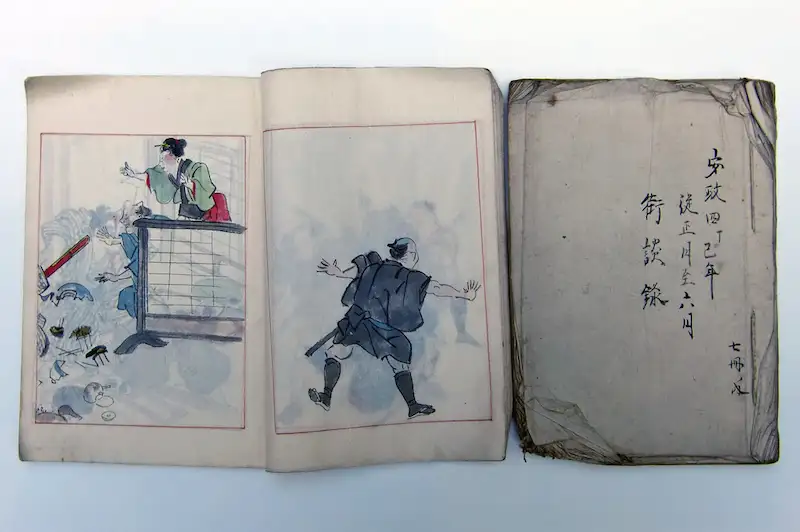 安政四丁巳年
從正月至六月
街談錄
七冊